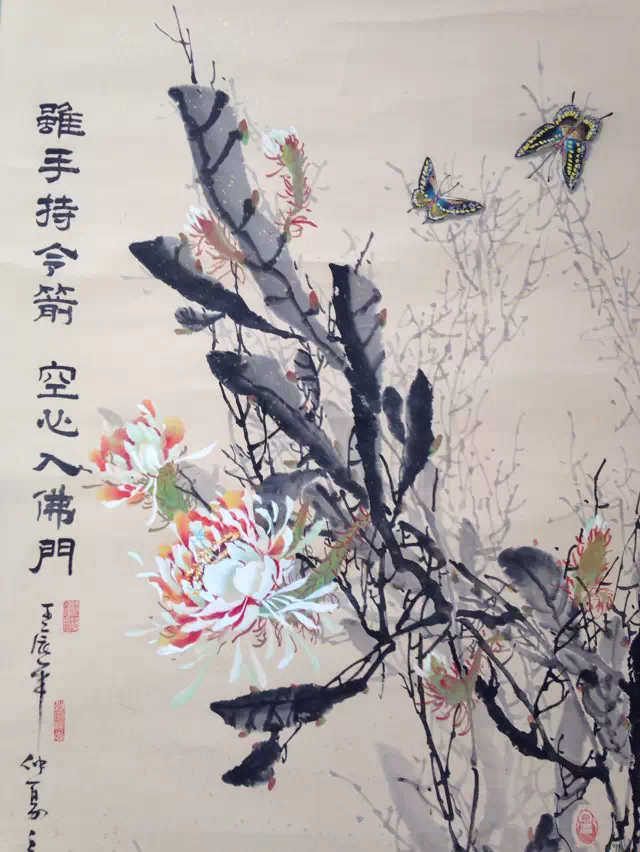 雖手持令箭 空心入佛門
壬辰年仲夏